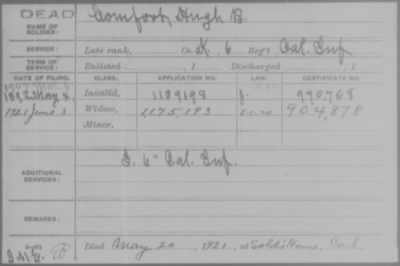 DEAD
NAME OF SOLDIER: Comfort, Hugh B.
SERVICE: Late rank, Co. K, 6 Reg't Cal. Inf.
TERM OF SERVICE: Enlisted , 1 Discharged , 1
DATE OF FILING. CLASS. APPLICATION NO. LAW. CERTIFICATE NO.
1892 May 4. Invalid, 1109198 990,708
1921 June 3 Widow, 1,175,193 904,878
Minor,
ADDITIONAL SERVICES: Cal. Inf.
REMARKS:
Died May 20, 1921, at Sold. Home, Cal.